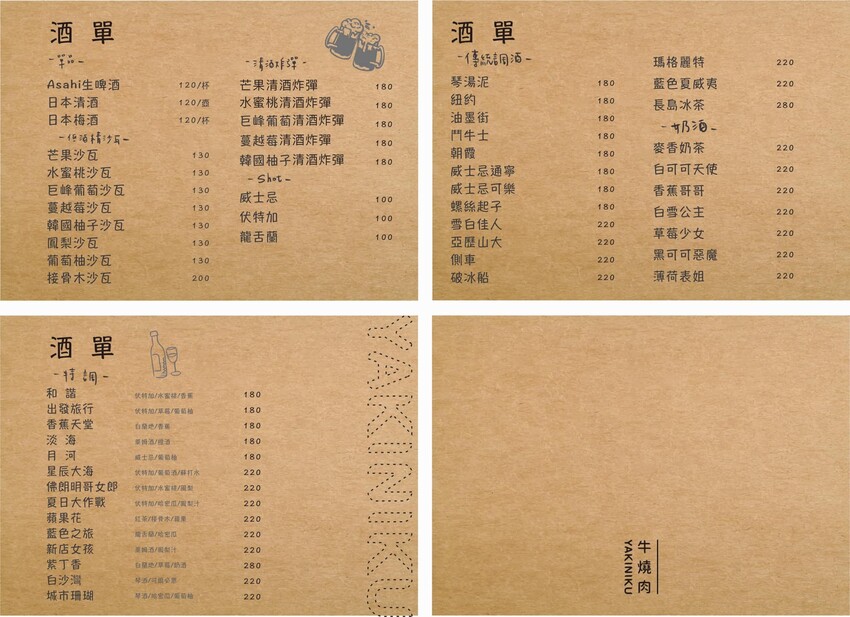 酒 單
-單品-
Asahi生啤酒 120/杯
日本清酒 120/壺
日本梅酒 120/杯
-低酒精沙瓦-
芒果沙瓦 130
水蜜桃沙瓦 130
巨峰葡萄沙瓦 130
蔓越莓沙瓦 130
韓國柚子沙瓦 130
鳳梨沙瓦 130
葡萄柚沙瓦 130
接骨木沙瓦 200
-清酒炸彈-
芒果清酒炸彈 180
水蜜桃清酒炸彈 180
巨峰葡萄清酒炸彈 180
蔓越莓清酒炸彈 180
韓國柚子清酒炸彈 180
-Shot-
威士忌 100
伏特加 100
龍舌蘭 100
酒 單
-傳統調酒-
琴湯泥 180
紐約 180
油墨街 180
鬥牛士 180
朝霞 180
威士忌通寧 180
威士忌可樂 180
螺絲起子 180
雪白佳人 220
亞歷山大 220
側車 220
破冰船 220
瑪格麗特 220
藍色夏威夷 220
長島冰茶 280
-奶酒-
麥香奶茶 220
白可可天使 220
香蕉哥哥 220
白雪公主 220
草莓少女 220
黑可可惡魔 220
薄荷表姐 220
酒 單
-特調-
和 諧 伏特加/水蜜桃/香蕉 180
出發旅行 伏特加/草莓/葡萄柚 180
香蕉天堂 白蘭地/香蕉 180
淡 海 180
月 河 威士忌/葡萄柚 180
星辰大海 伏特加/葡萄酒/蘇打水 220
佛朗明哥女郎 伏特加/水蜜桃/鳳梨 220
夏日大作戰 伏特加/哈密瓜/鳳梨汁 220
蘋果花 220
藍色之旅 龍舌蘭/哈密瓜 220
新店女孩 萊姆酒/鳳梨汁 220
紫丁香 白蘭地/草莓/奶酒 280
白沙灣 220
城市珊瑚 琴酒/哈密瓜/葡萄柚 220
YAKINIKU
牛燒肉
YAKINIKU